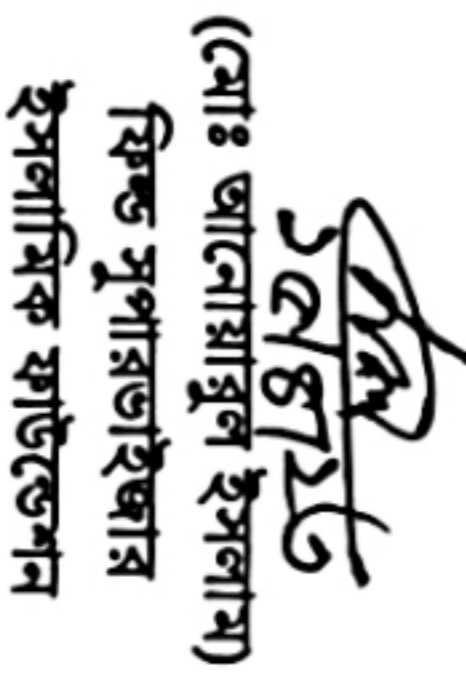 (মোঃ আনোয়ারুল ইসলাম)
ফিল্ড সুপারভাইজার
ইসলামিক ফাউন্ডেশন